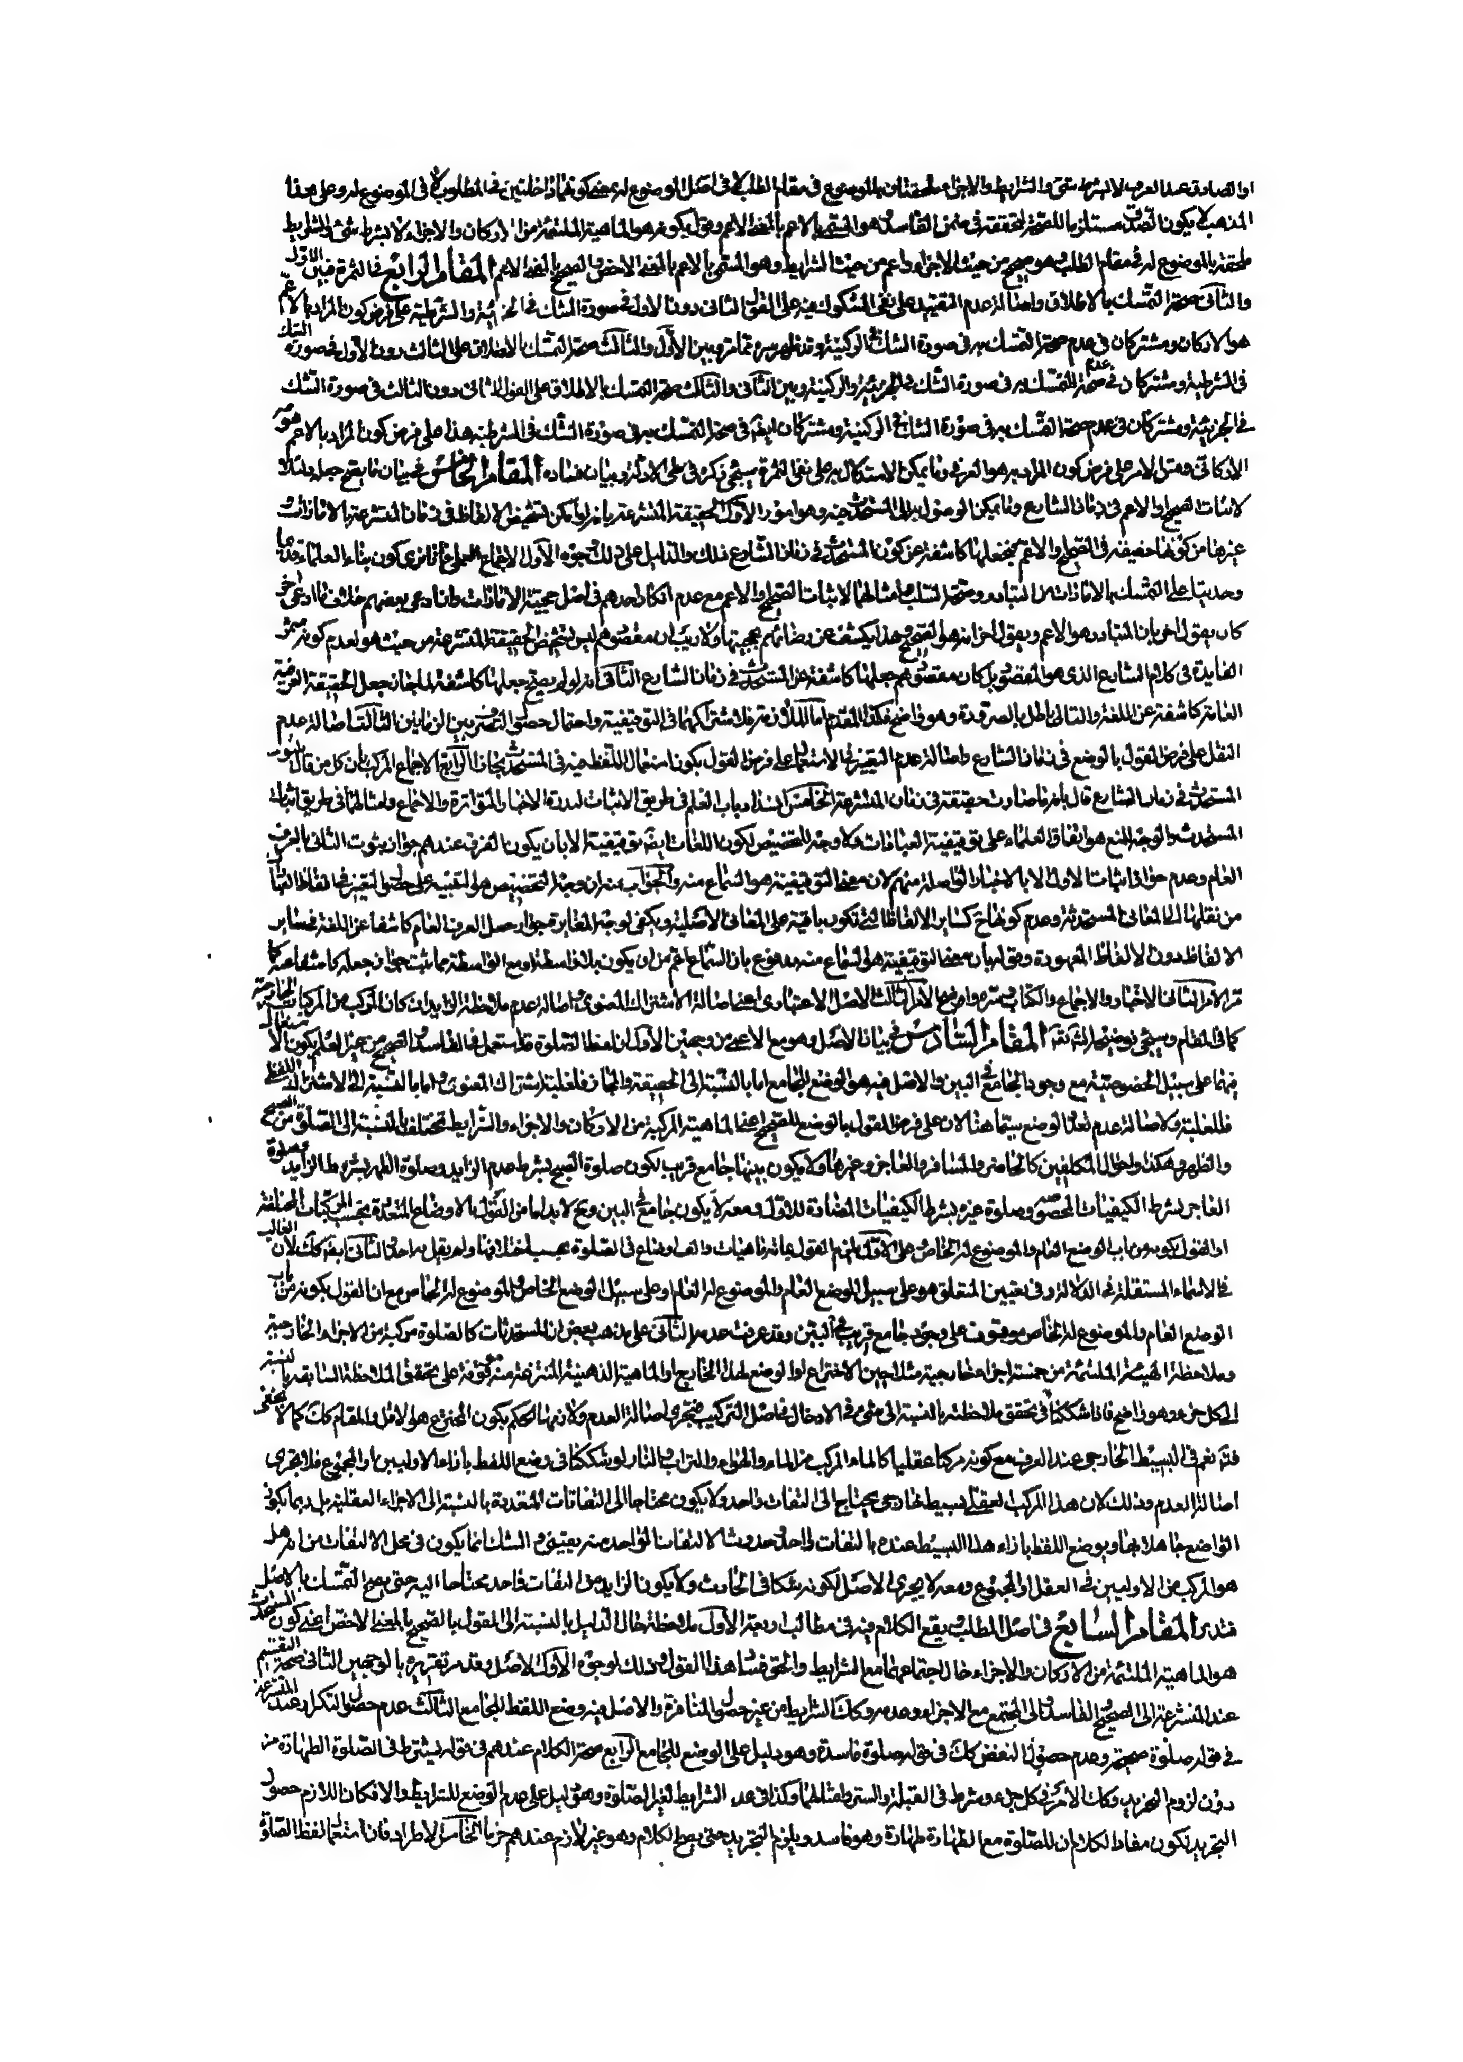 او الصادق عند العرف لا بشرط شئ والشرايط والاجزاء ملحقتان بالموضوع في مقام الطلب لا في اصل الموضوع له بمعنى كونهما داخلتين في المطلوب لا في الموضوع له وعلى هذا
المذهب لا يكون الصدق مستلزما للصحة لتحققه في ضمن الفاسد وهو المسمى بالاعم بالمعنى الاعم وقول بكونه هو الماهية الملتئمة من الاركان والاجزاء لا بشرط شئ والشرايط
ملحقة بالموضوع له في مقام الطلب وهو صحيح من حيث الاجزاء واعم من حيث الشرايط وهو المسمى بالاعم بالمعنى الاخص والصحيح بالمعنى الاعم المقام الرابع في الثمرة فبين الاول
والثاني صحة التمسك بالاطلاق واصالة عدم التقييد على نفي المشكوك فيه على القول الثاني دون الاول في صورة الشك في الجزئية والشرطية على فرض كون المراد بالاعم
هو الاركان ومشتركان في عدم صحة التمسك به في صورة الشك في الركنية وقد ظهر سره مما مر وبين الاول والثالث صحة التمسك بالاطلاق على الثالث دون الاول في صورة الشك
في الشرطية ومشتركان في عدم صحة التمسك به في صورة الشك في الجزئية والركنية وبين الثاني والثالث صحة التمسك بالاطلاق على القول الثاني دون الثالث في صورة الشك
في الجزئية ومشتركان في عدم صحة التمسك به في صورة الشك في الركنية ومشتركان ايضا في صحة التمسك به في صورة الشك في الشرطية هذا على فرض كون المراد بالاعم هو
الاركاني ومثل الامر على فرض كون المراد به هو العرفي وما يمكن الاستدلال به على نفي الثمرة سيجئ ذكره في طي الادلة وبيان فساده المقام الخامس في بيان ما يصح جعله دليلا
لاثبات الصحيح او الاعم في زمان الشارع وما يمكن الوصول به الى المستحدث فيه وهو امور الاول الحقيقة المتشرعة بامر ما يمكن تشخيص الالفاظ في زمان المتشرعة بالامارات
غيرها من كونها حقيقة في الصحيح او الاعم فنجعلها كاشفة عن كون المستحدث في زمان الشارع ذلك والدليل على ذلك وجوه الاول الاجماع العملي فانا نرى كون بناء العلماء قديما
وحديثا على التمسك بالامارات من التبادر وصحة السلب وامثالهما لاثبات الصحيح او الاعم مع عدم انكار احدهم في اصل حجية الامارات وانما ادعى بعضهم خلاف ما ادعى الاخر
كان يقول احد بان المتبادر هو الاعم ويقول اخر انه هو الصحيح وهذا يكشف عن رضائهم بحجيتها ولا ريب ان مقصودهم ليس تشخيص الحقيقة المتشرعة من حيث هو لعدم كونه مثمر
الفايدة في كلام الشارع الذي هو المقصود بل كان مقصودهم جعلها كاشفة عن المستحدث في زمان الشارع الثاني انه لو لم يصح جعلها كاشفة لما جاز جعل الحقيقة العرفية
العامة كاشفة عن اللغة والتالي باطل بالضرورة وهو واضح فكذا المقدم اما الملازمة فلاشتراكهما في التوقيفية واحتمال حصول التغير بين الزمانين الثالث اصالة عدم
النقل على فرض القول بالوضع في زمان الشارع واصالة عدم التغيير في الاستعمال على فرض القول بكون استعمال اللفظ فيه في المستحدث مجازا الرابع الاجماع المركب بان كل من قال بثبوت
المستحدث في زمان الشارع قال بانه ما صارت حقيقة في زمان المتشرعة الخامس انسداد باب العلم في طريق الاثبات لندرة الاخبار المتواترة والاجماع وامثالهما في طريق اثبات
المستحدث والوجه المنع هو اتفاق العلماء على توقيفية العبادات ولا وجه للتخصيص لكون اللغات ايضا توقيفية الا بان يكون الفرق عندهم جواز ثبوت الثاني بالعرف
العام وعدم جواز اثبات الاول الا بالاخبار الواصلة منهم لان معنى التوقيفية هو السماع منه والجواب عنه ان وجه التخصيص هو التنبيه على حصول التغير في الفاظ العبادات
من نقلها الى المعاني المستحدثة وعدم كونها كساير الالفاظ التي تكون باقية على المعاني الاصلية ويكفي لوجه المغايرة جواز جعل العرف العام كاشفا عن اللغة في ساير
الالفاظ دون الالفاظ المعهودة وقوله بان معنى التوقيفية هو السماع منه مدفوع بان السماع اعم من ان يكون بلا واسطة او مع الواسطة مما ثبت جواز جعله كاشفا عنه كما
مر الامر الثاني الاخبار والاجماع والكتاب وسره واضح الامر الثالث الاصل الاعتباري اعني اصالة الاشتراك المعنوي واصالة عدم ملاحظة الزايد ان كان المركب من المركبات الخارجية
كما في المقام وسيجئ توضيحه انشاء الله المقام السادس في بيان الاصل وهو مع الاعمي من وجهين الاول ان لفظ الصلوة قد استعمل في الفاسد والصحيح من غير العلم بكون الاستعمال
فيهما على سبيل الخصوصية مع وجود الجامع في البين والاصل فيه هو الوضع للجامع اما بالنسبة الى الحقيقة والمجاز فلغلبة اشتراك المعنوي واما بالنسبة الى الاشتراك اللفظي
فللغلبة ولاصالة عدم تعدد الوضع سيما هنا لان على فرض القول بالوضع للصحيح اعني الماهية المركبة من الاركان والاجزاء والشرايط تختلف بالنسبة الى الصلوة من الصبح
والظهر وهكذا واحوال المكلفين كالحاضر والمسافر والعاجز وغيرها ولا يكون بينها جامع قريب لكون صلوة الصبح بشرط عدم الزايد وصلوة الظهر بشرط الزايد وصلوة
العاجز بشرط الكيفيات المخصوصة وصلوة غيره بشرط الكيفيات المضادة للاول ومعه لا يكون جامع في البين وح لا بد اما من القول بالاوضاع المتعددة بحسب المركبات المختلفة
او القول بكونه من باب الوضع العام والموضوع له الخاص وعلى الاول يلزم القول بمائة ماهيات والف اوضاع في الصلوة بحسب اختلافها ولم يقل به احد والثاني ايضا كك لان الغالب
في الاسماء المستقلة في الدلالة وفي تعيين المتعلق هو على سبيل الوضع العام والموضوع له العام او على سبيل الوضع الخاص والموضوع له الخاص مع ان القول بكونه من باب
الوضع العام والموضوع له الخاص موقوف على وجود جامع قريب في البين وقد عرفت عدمه الثاني على مذهب بعض ان المستحدثات كالصلوة مركبة من الاجزاء الخارجية
وملاحظة الهيئة الملتئمة من خمسة اجزاء خارجية مثلا حين الاختراع او الوضع لهذا الخارج او الماهية الذهنية المنتزعة منه موقوفة على تحقق الملاحظة السابقة بالنسبة
الى كل جزء وهو واضح فاذا شككنا في تحقق ملاحظته بالنسبة الى شئ في الادخال في اصل التركيب فتجري اصالة العدم ولازمها الحكم بكون المخترع هو الاقل والمقام كك كما لا يخفى
فتم نعم في البسيط الخارجي عند العرف مع كونه مركبا عقليا كالماء المركب من الماء والهواء والتراب والنار لو شككنا في وضع اللفظ بازاء الاوليين او المجموع فلا يجري
اصالة العدم وذلك لان هذا المركب العقلي بسيط خارجي يحتاج الى التفات واحد ولا يكون محتاجا الى التفاتات المتعددة بالنسبة الى الاجزاء العقلية بل ربما يكون
الواضع جاهلا بها ويوضع اللفظ بازاء هذا البسيط عنده بالتفات واحد وحدوث الالتفات الواحد منه يقيني والشك انما يكون في محل الالتفات من انه هل
هو المركب من الاوليين في العقل او المجموع ومعه لا يجري الاصل لكونه شكا في الحادث ولا يكون الزايد من التفات واحد محتاجا اليه حتى يصح التمسك بالاصل
فتدبر المقام السابع في اصل المطلب ويقع الكلام فيه في مطالب اربعة الاول ملاحظة حال الدليل بالنسبة الى القول بالصحيح بالمعنى الاخص اعني كون المستحدث
هو الماهية الملتئمة من الاركان والاجزاء حال اجتماعهما مع الشرايط والحق فساد هذا القول وذلك لوجوه الاول الاصل وقد مر تقريره بالوجهين الثاني صحة التقسيم
عند المتشرعة الى الصحيح والفاسد والى المجتمع مع الاجزاء وعدمه وكك الشرايط من غير حصول المنافرة والاصل فيه وضع اللفظ للجامع الثالث عدم حصول التكرار عند المتشرعة
في قوله صلوة صحيحة وعدم حصول التناقض كك في قوله صلوة فاسدة وهو دليل على الوضع للجامع الرابع صحة الكلام عندهم في قوله يشترط في الصلوة الطهارة من
دون لزوم التجريد وكك الامر في كل جزء وشرط في القبلة والستر وامثالهما وكذا في عدد الشرايط لغير الصلوة وهو دليل على عدم الوضع للشرايط والا فكان اللازم حصول
التجريد لكون مفاد الكلام ان للصلوة مع الطهارة طهارة وهو فاسد ويلزم التجريد حتى يصح الكلام وهو غير لازم عندهم جزما الخامس الاطراد فان استعمال لفظ الصلوة